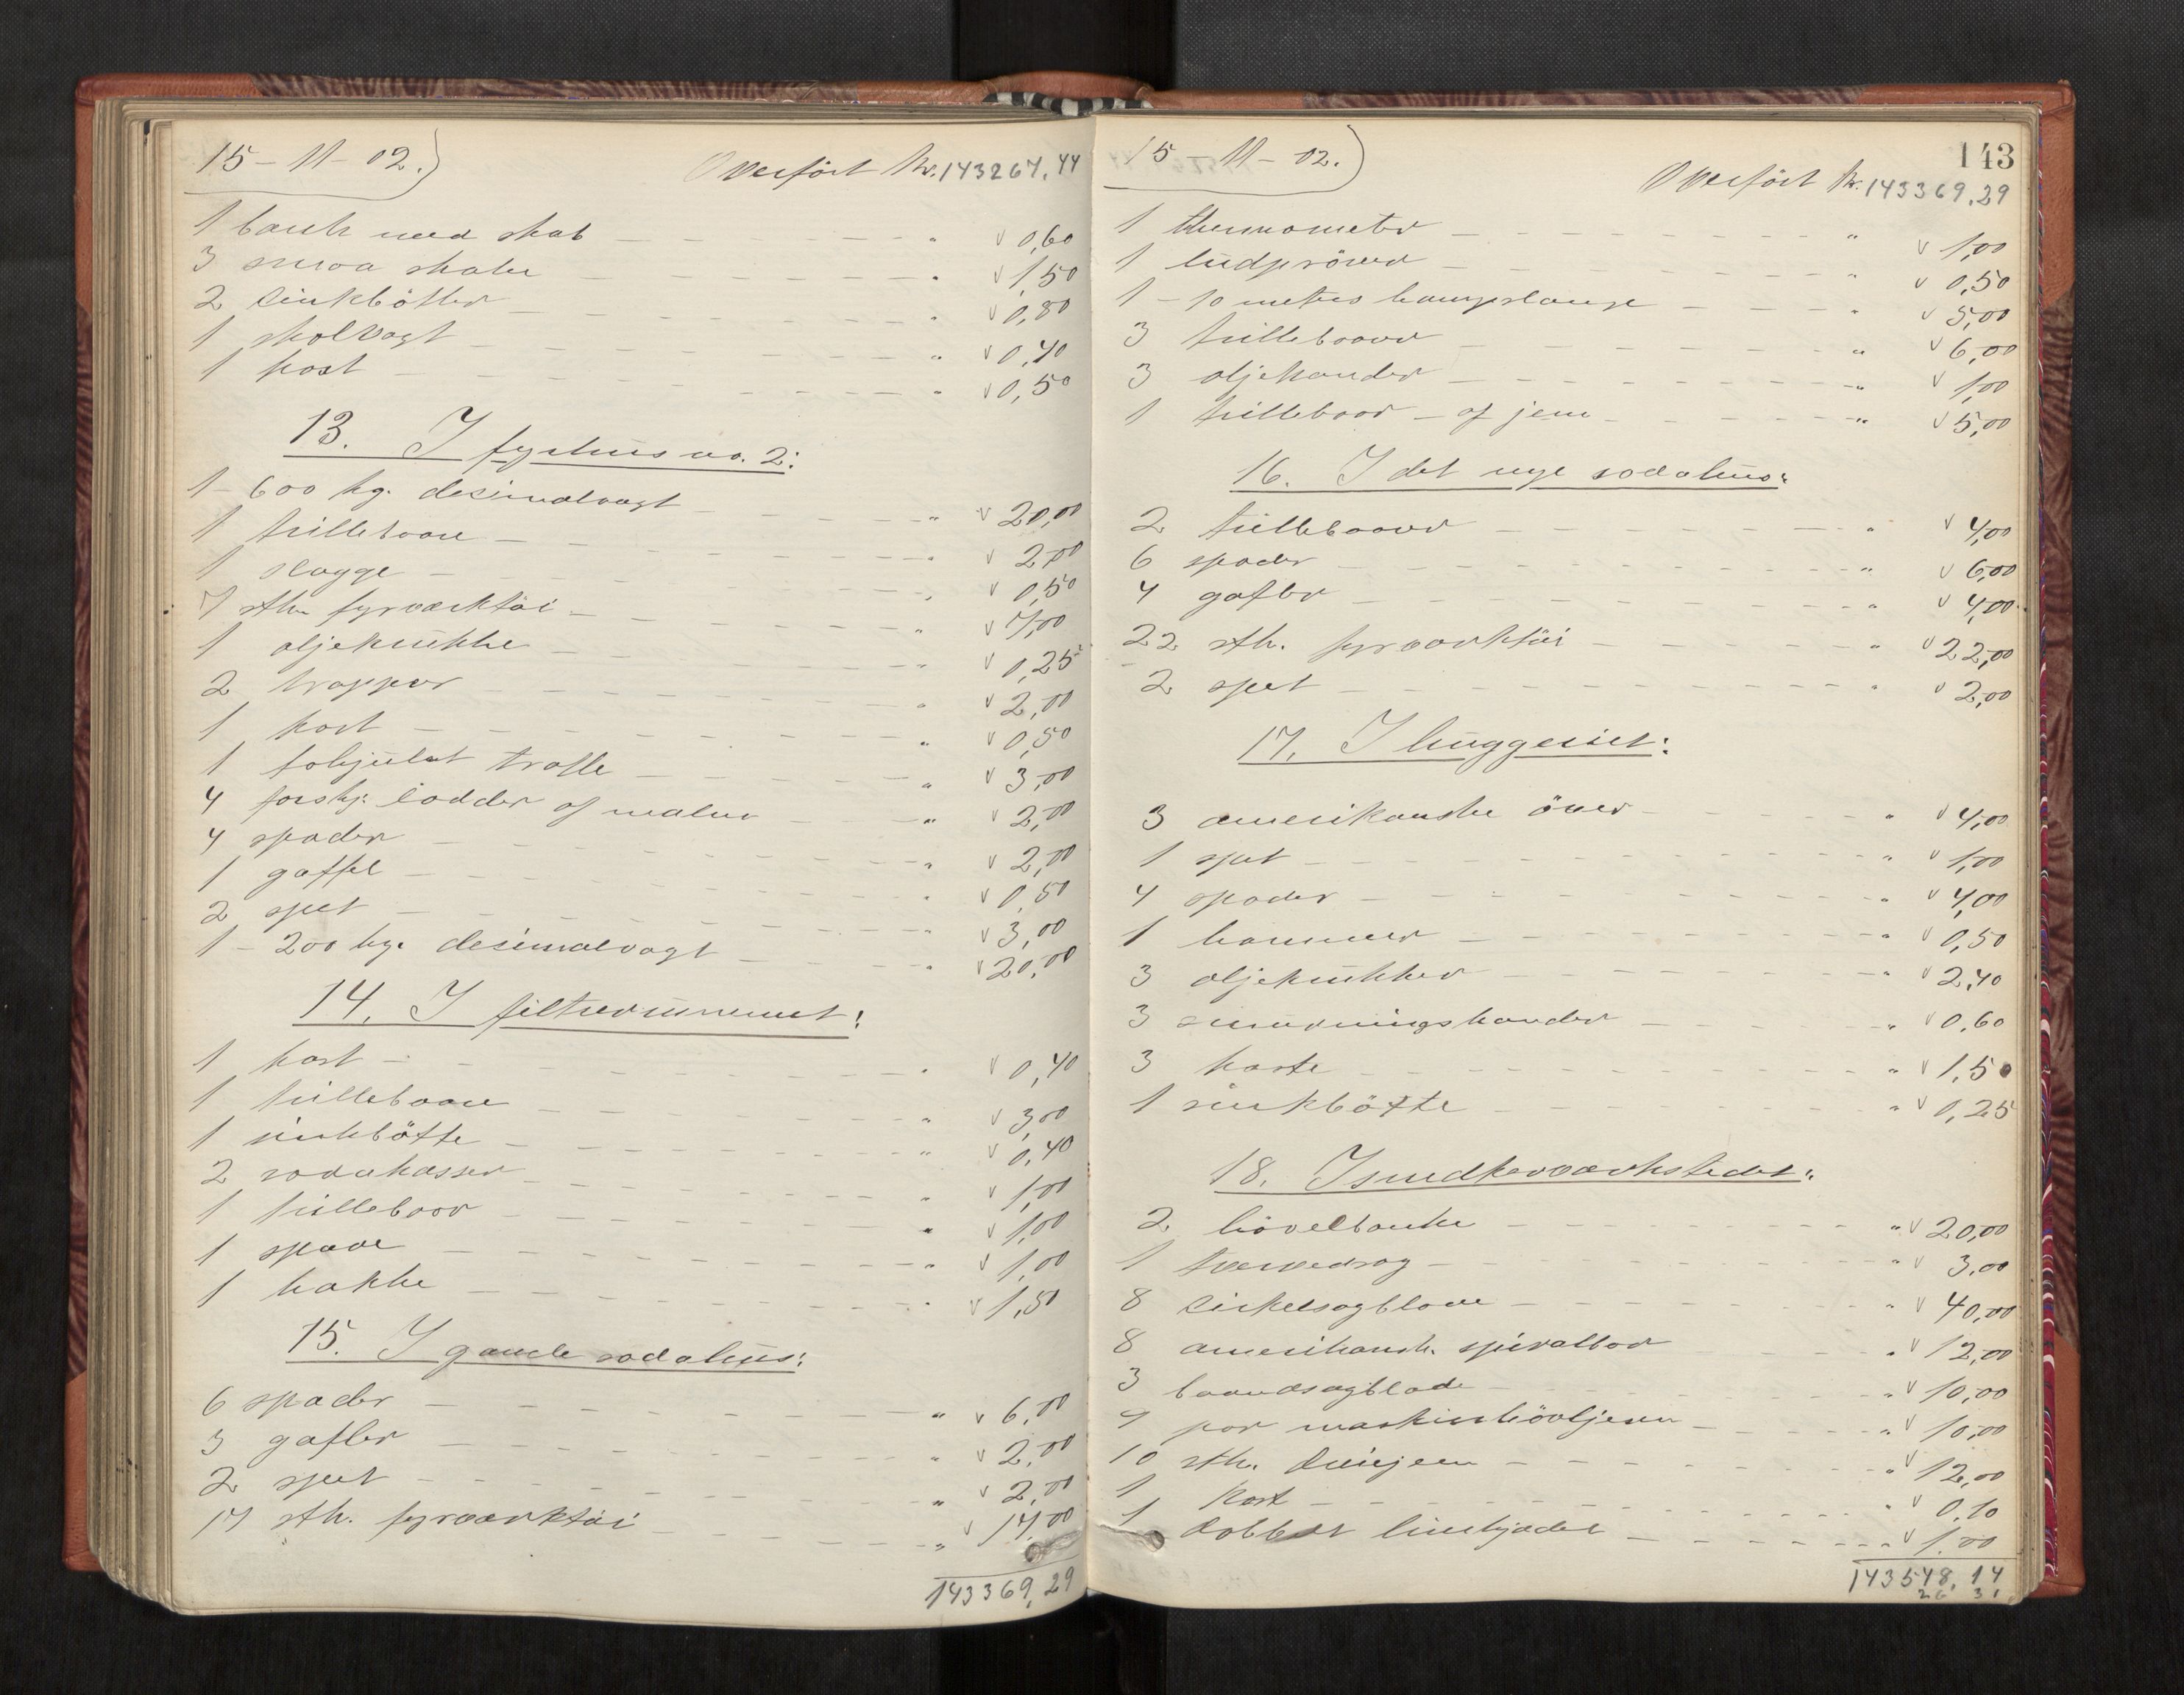 15 - 11 - 02.)
Overført Kr. 143267,44
1 bænk med skab " v 0,60
3 smaa skabe " v 1,50
2 sinkbötter " v 0,80
1 skolvagt " v 0,40
1 kost " v 0,50
13. I fyrhus no. 2:
1 - 600 kg. desimalvagt " v 20,00
1 trillebaare " v 2,00
1 slægge " v 0,50
7 stk. fyrværktöi " v 7,00
1 oljekrukke " v 0,25
2 trapper " v 2,00
1 kost " v 0,50
1 firhjulet tralle " v 3,00
4 forskj. lodder af metal " v 2,00
4 spader " v 2,00
1 gaffel " v 0,50
2 spet " v 3,00
1 - 200 kg. desimalvagt " v 20,00
14. I filterrummet:
1 kost " v 0,40
1 trillebaare " v 3,00
1 sinkbötte " v 0,40
2 sodakasser " v 1,00
1 trillebaar " v 1,00
1 spade " v 1,00
1 hakke " v 1,50
15. I gamle sodahus:
6 spader " v 6,00
3 gafler " v 2,00
2 spet " v 2,00
17 stk. fyrværktöi " v 17,00
143369,29
143
15 - 11 - 02.)
Overført Kr. 143369,29
1 thermometer " v 1,00
1 ludpröver " v 0,50
1 - 10 meters hampslange " v 5,00
3 trillebaarer " v 6,00
3 oljekander " v 1,00
1 trillebaar - af jern " v 5,00
16. I det nye sodahus:
2 trillebaarer " v 4,00
6 spader " v 6,00
4 gafler " v 4,00
22 stk. fyrværktöi " v 22,00
2 spet " v 2,00
17. I huggeriet:
3 amerikanske öxer " v 4,00
1 spet " v 1,00
4 spader " v 4,00
1 hammer " v 0,50
3 oljekrukker " v 2,40
3 smörningskander " v 0,60
3 koste " v 1,50
1 sinkbötte " v 0,25
18. I snedkerværkstedet:
2 hövelbænke " v 20,00
1 tversedrag " v 3,00
8 cirkelsagblade " v 40,00
8 amerikansk. spiralbor " v 12,00
3 baandsagblade " v 10,00
4 par maskinhövljern " v 10,00
10 stk. dreiejern " v 12,00
1 kost " v 0,10
1 dobbelt linehjødel " v 1,00
143548,14
26 31